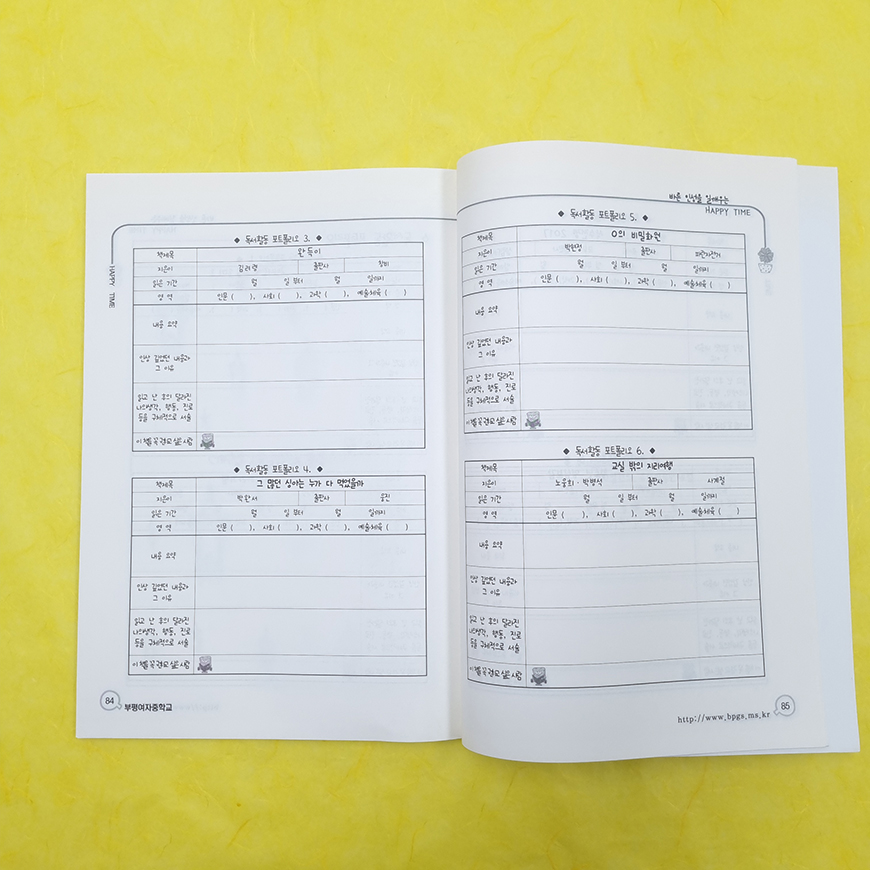 HAPPY TIME
◆ 독서활동 포트폴리오 3. ◆
책제목 완득이
지은이 김려령 출판사 창비
읽은 기간 월 일 부터 월 일까지
영 역 인문 ( ), 사회 ( ), 과학 ( ), 예술체육 ( )
내용 요약
인상 깊었던 내용과
그 이유
읽고 난 후의 달라진
나의생각, 행동, 진로
등을 구체적으로 서술
이 책을 꼭 권하고 싶은 사람
◆ 독서활동 포트폴리오 4. ◆
책제목 그 많던 싱아는 누가 다 먹었을까
지은이 박완서 출판사 웅진
읽은 기간 월 일 부터 월 일까지
영 역 인문 ( ), 사회 ( ), 과학 ( ), 예술체육 ( )
내용 요약
인상 깊었던 내용과
그 이유
읽고 난 후의 달라진
나의생각, 행동, 진로
등을 구체적으로 서술
이 책을 꼭 권하고 싶은 사람
84 부평여자중학교
바른 인성을 일깨우는
HAPPY TIME
◆ 독서활동 포트폴리오 5. ◆
책제목 0의 비밀화원
지은이 박현정 출판사 파란자전거
읽은 기간 월 일 부터 월 일까지
영 역 인문 ( ), 사회 ( ), 과학 ( ), 예술체육 ( )
내용 요약
인상 깊었던 내용과
그 이유
읽고 난 후의 달라진
나의생각, 행동, 진로
등을 구체적으로 서술
이 책을 꼭 권하고 싶은 사람
◆ 독서활동 포트폴리오 6. ◆
책제목 교실 밖의 지리여행
지은이 노웅희·박병석 출판사 사계절
읽은 기간 월 일 부터 월 일까지
영 역 인문 ( ), 사회 ( ), 과학 ( ), 예술체육 ( )
내용 요약
인상 깊었던 내용과
그 이유
읽고 난 후의 달라진
나의생각, 행동, 진로
등을 구체적으로 서술
이 책을 꼭 권하고 싶은 사람
http://www.bpgs.ms.kr 85